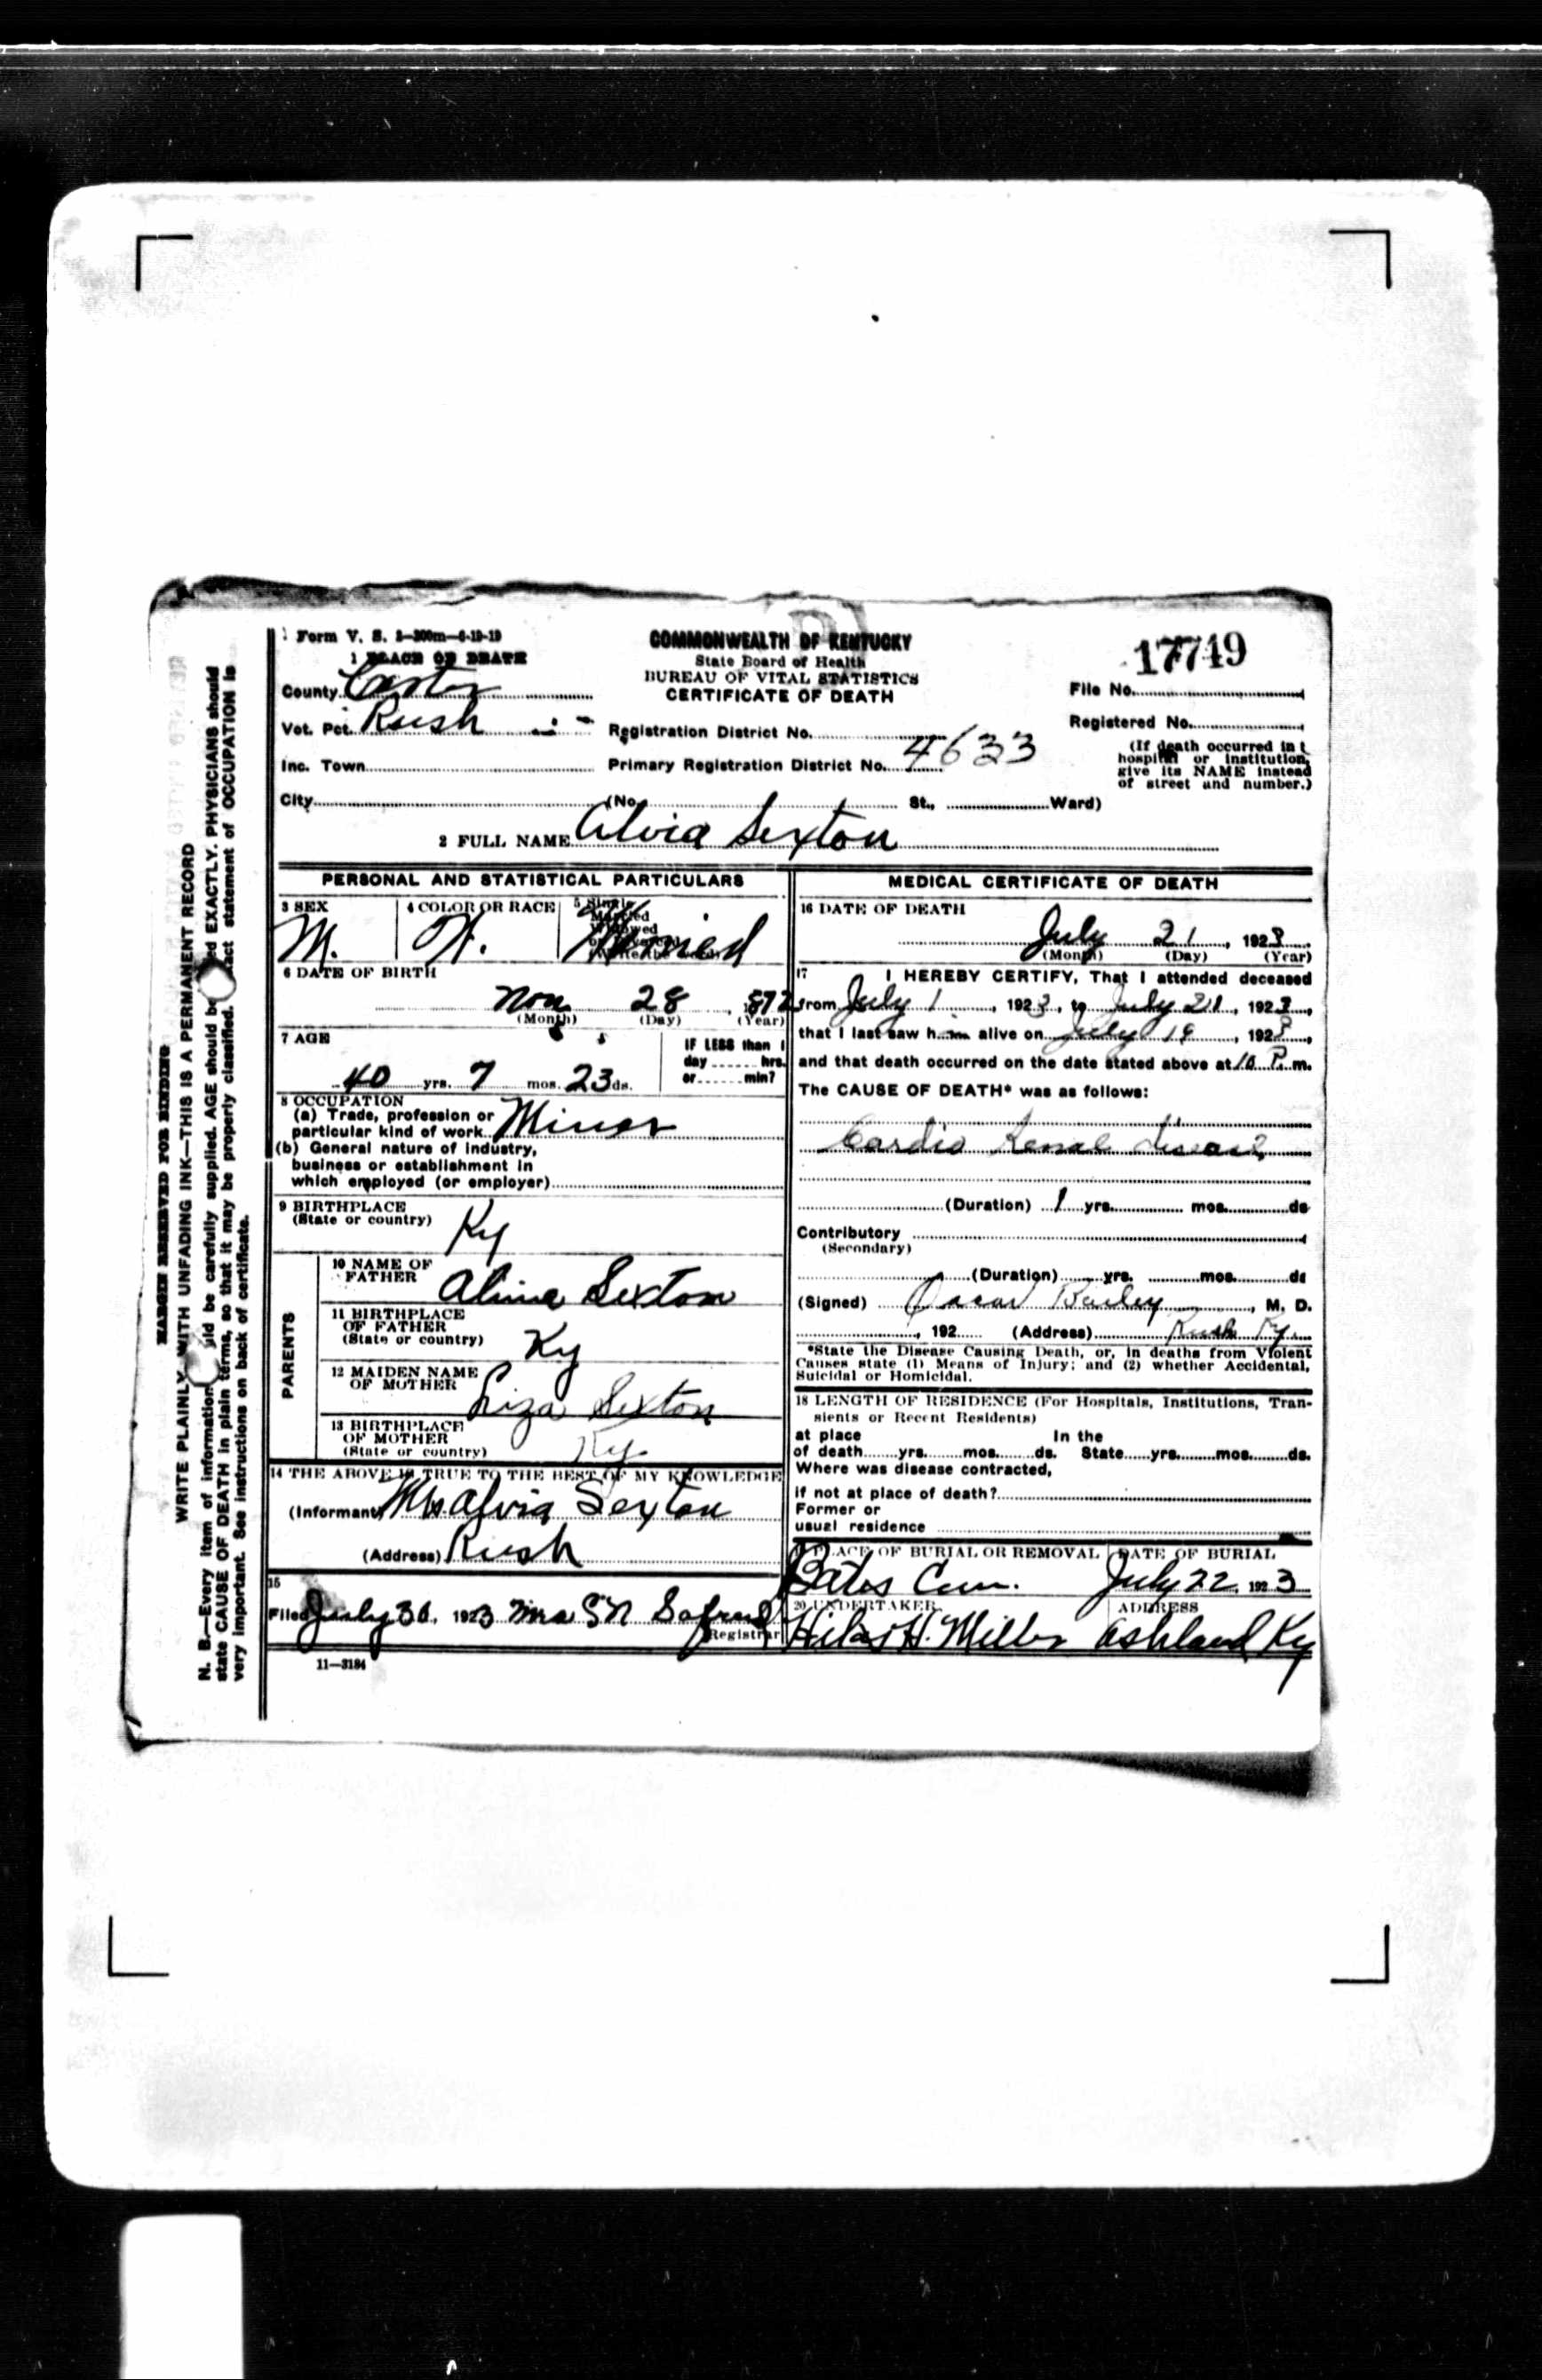 Form V. S. 1-300m-6-19-19
1 PLACE OF DEATH
COMMONWEALTH OF KENTUCKY
State Board of Health
BUREAU OF VITAL STATISTICS
CERTIFICATE OF DEATH
17749
File No.
Registered No.
(If death occurred in
hospital or institution,
give its NAME instead
of street and number.)
County Carter
Vot. Pct. Rush
Registration District No.
Inc. Town
Primary Registration District No. 4633
City (No. St., Ward)
2 FULL NAME Alvia Sexton
PERSONAL AND STATISTICAL PARTICULARS
3 SEX M.
4 COLOR OR RACE W.
5 Single
Married
Widowed
6 DATE OF BIRTH
Nov 28, 1872
(Month) (Day) (Year)
7 AGE
40 yrs. 7 mos. 23 ds.
IF LESS than 1
day hrs.
or min?
8 OCCUPATION
(a) Trade, profession or
particular kind of work Miner
(b) General nature of industry,
business or establishment in
which employed (or employer)
9 BIRTHPLACE
(State or country) Ky
PARENTS
10 NAME OF
FATHER Sexton
11 BIRTHPLACE
OF FATHER
(State or country) Ky
12 MAIDEN NAME
OF MOTHER Liza Sexton
13 BIRTHPLACE
OF MOTHER
(State or country) Ky.
14 THE ABOVE IS TRUE TO THE BEST OF MY KNOWLEDGE
(Informant) Mrs Alvia Sexton
(Address) Rush
15
Filed July 30, 1923 Mrs S N
Registrar
11-3184
MEDICAL CERTIFICATE OF DEATH
16 DATE OF DEATH
July 21, 1923
(Month) (Day) (Year)
17 I HEREBY CERTIFY, That I attended deceased
from July 1, 1923, to July 21, 1923,
that I last saw him alive on July 19, 1923,
and that death occurred on the date stated above at 10 P. m.
The CAUSE OF DEATH* was as follows:
Cardio Renal disease
(Duration) 1 yrs. mos. ds
Contributory
(Secondary)
(Duration) yrs. mos. ds
(Signed) Oscar Bailey, M. D.
, 192 (Address) Rush Ky.
*State the Disease Causing Death, or, in deaths from Violent
Causes state (1) Means of Injury; and (2) whether Accidental,
Suicidal or Homicidal.
18 LENGTH OF RESIDENCE (For Hospitals, Institutions, Tran-
sients or Recent Residents)
at place In the
of death yrs. mos. ds. State yrs. mos. ds.
Where was disease contracted,
if not at place of death?
Former or
usual residence
19 PLACE OF BURIAL OR REMOVAL DATE OF BURIAL
Bates Cem. July 22, 1923
20 UNDERTAKER ADDRESS
H. Miller Ashland Ky
MARGIN RESERVED FOR BINDING
WRITE PLAINLY WITH UNFADING INK—THIS IS A PERMANENT RECORD
N. B.—Every item of information should be carefully supplied. AGE should be stated EXACTLY. PHYSICIANS should
state CAUSE OF DEATH in plain terms, so that it may be properly classified. Exact statement of OCCUPATION is
very important. See instructions on back of certificate.